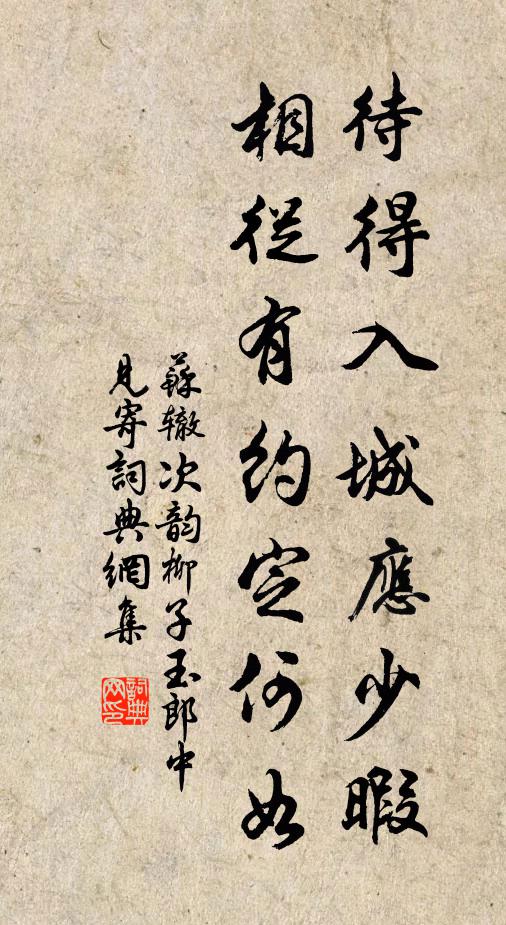 待得入城應少暇
相從有約定何如
蘇辙次韵柳子玉郎中
見寄詞典網集
詞典
网印